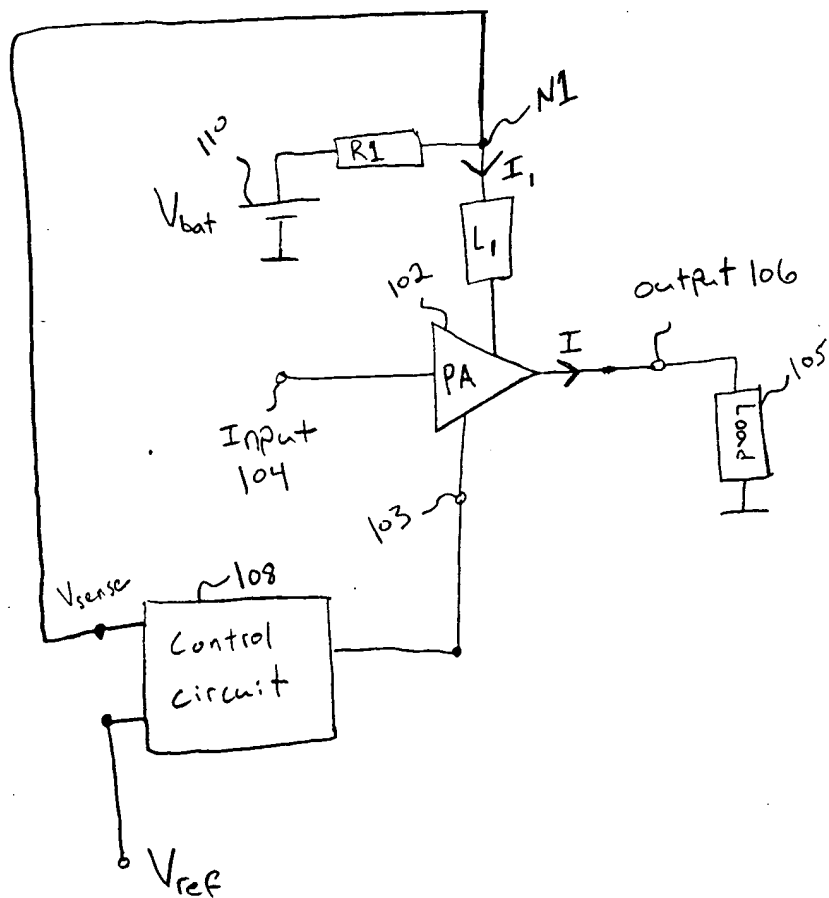 N1
110
R1
I1
Vbat
L1
102
output 106
I
PA
105
Load
Input
104
103
108
Vsense
Control
circuit
Vref